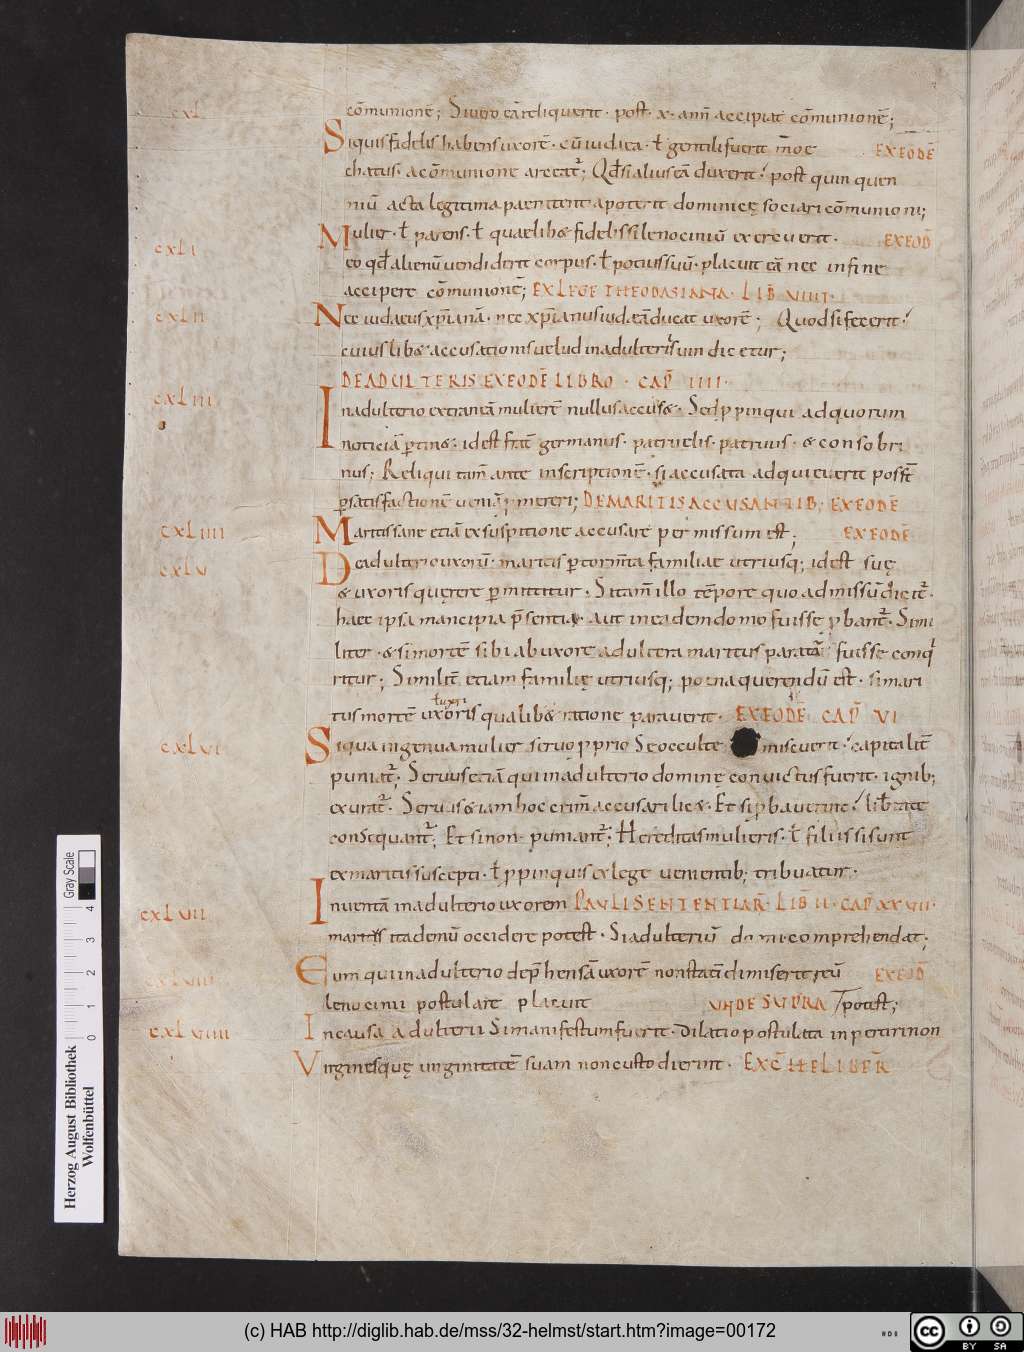 cxl cōmunionē; Si uero eā reliquerit · post · x · ann̄ accipiat cōmunionē;
Siquis fidelis habens uxorē · cū iudea · ł gentili fuerit moe EX EODĒ
chatus · a cōmunione arceat᷑; Qd̄ si alius eā duxerit · post quinquen
niū acta legitima paenitentia poterit dominicę sociari cōmunioni;
cxli Mulier · ł parens · ł quaelib& fidelis si lenociniū exercuerit · EX EOD̄
eo qd̄ alienū uendiderit corpus · ł potius suū · placuit eā nec in fine
accipere cōmunionē; EX LEGE THEODASIANA · LIB̄ VIIII ·
cxlii Nec iudaeus xp̄ianā · nec xp̄ianus iudaeā ducat uxorē; Quod si fecerit ·
cuiuslib& accusationis uelud in adulteris uindicetur;
DE ADULTERIS EX EODĒ LIBRO · CAP̄ IIII ·
cxliii In adulterio extraneā mulierē nullus accus& · Sed ppinqui ad quorum
noticiā ptin& · id est frat̄ germanus · patruelis · patruus · & consobri
nus; Reliqui tam̄ ante inscriptionē · si accusata adquieuerit poss̄t
p satisfactionē ueniā pmereri; DE MARITIS ACCUSANTIB; EX EODĒ
cxliiii Maritis sane etiā ex suspitione accusare permissum est; EX EODĒ
cxlv De adulterio uxorū · maritis p torm̄ta familiae utriusq; id est suę
& uxoris quęrere pmittitur · Si tam̄ illo tēpore quo admissū dicit᷑ ·
haec ipsa mancipia p̄sentia · aut in eadem domo fuisse pbant᷑ · Simi
liter · & si mortē sibi ab uxore adultera maritus paratā fuisse conq
ritur; Similit̄ etiam familię utriusq; poena querendū est · si mari
ł uxori
tus mortē uxoris qualib& ratione parauerit · EX EODĒ CAP̄ VI
cxlvi Siqua ingenua mulier seruo pprio se occulte miscuerit · capitalit̄
puniat᷑ · Seruus etiā qui in adulterio dominę conuictus fuerit · ignib;
exurat᷑ · Seruis &iam hoc crim̄ accusari lic& · Et si pbauerint · lib̄tate
consequant᷑; Et si non · puniant᷑; Hereditas mulieris · ł filiis si sunt
ex maritis suscepti · ł ppinquis ex lege uenientib; tribuatur ·
cxlvii Inuentā in adulterio uxorem PAULI SENTENTIAR̄ · LIB̄ II · CAP̄ XXVII ·
maritis ita denū occidere potest · Si adulteriū domi comprehendat;
cxlviii Eum qui in adulterio dep̄hensā uxorē non statī dimiserit reū EX EOD̄
lenocinii postulare placuit UNDE SUPRA potest;
cxlviiii In causa adulterii Si manifestum fuerit · dilatio postulata inpertiri non
Virginesquę uirginitatē suam non custodierint · EXC̄ HELIBER̄
Herzog August Bibliothek
Wolfenbüttel
0 1 2 3 4
Gray Scale
(c) HAB http://diglib.hab.de/mss/32-helmst/start.htm?image=00172
cc BY SA